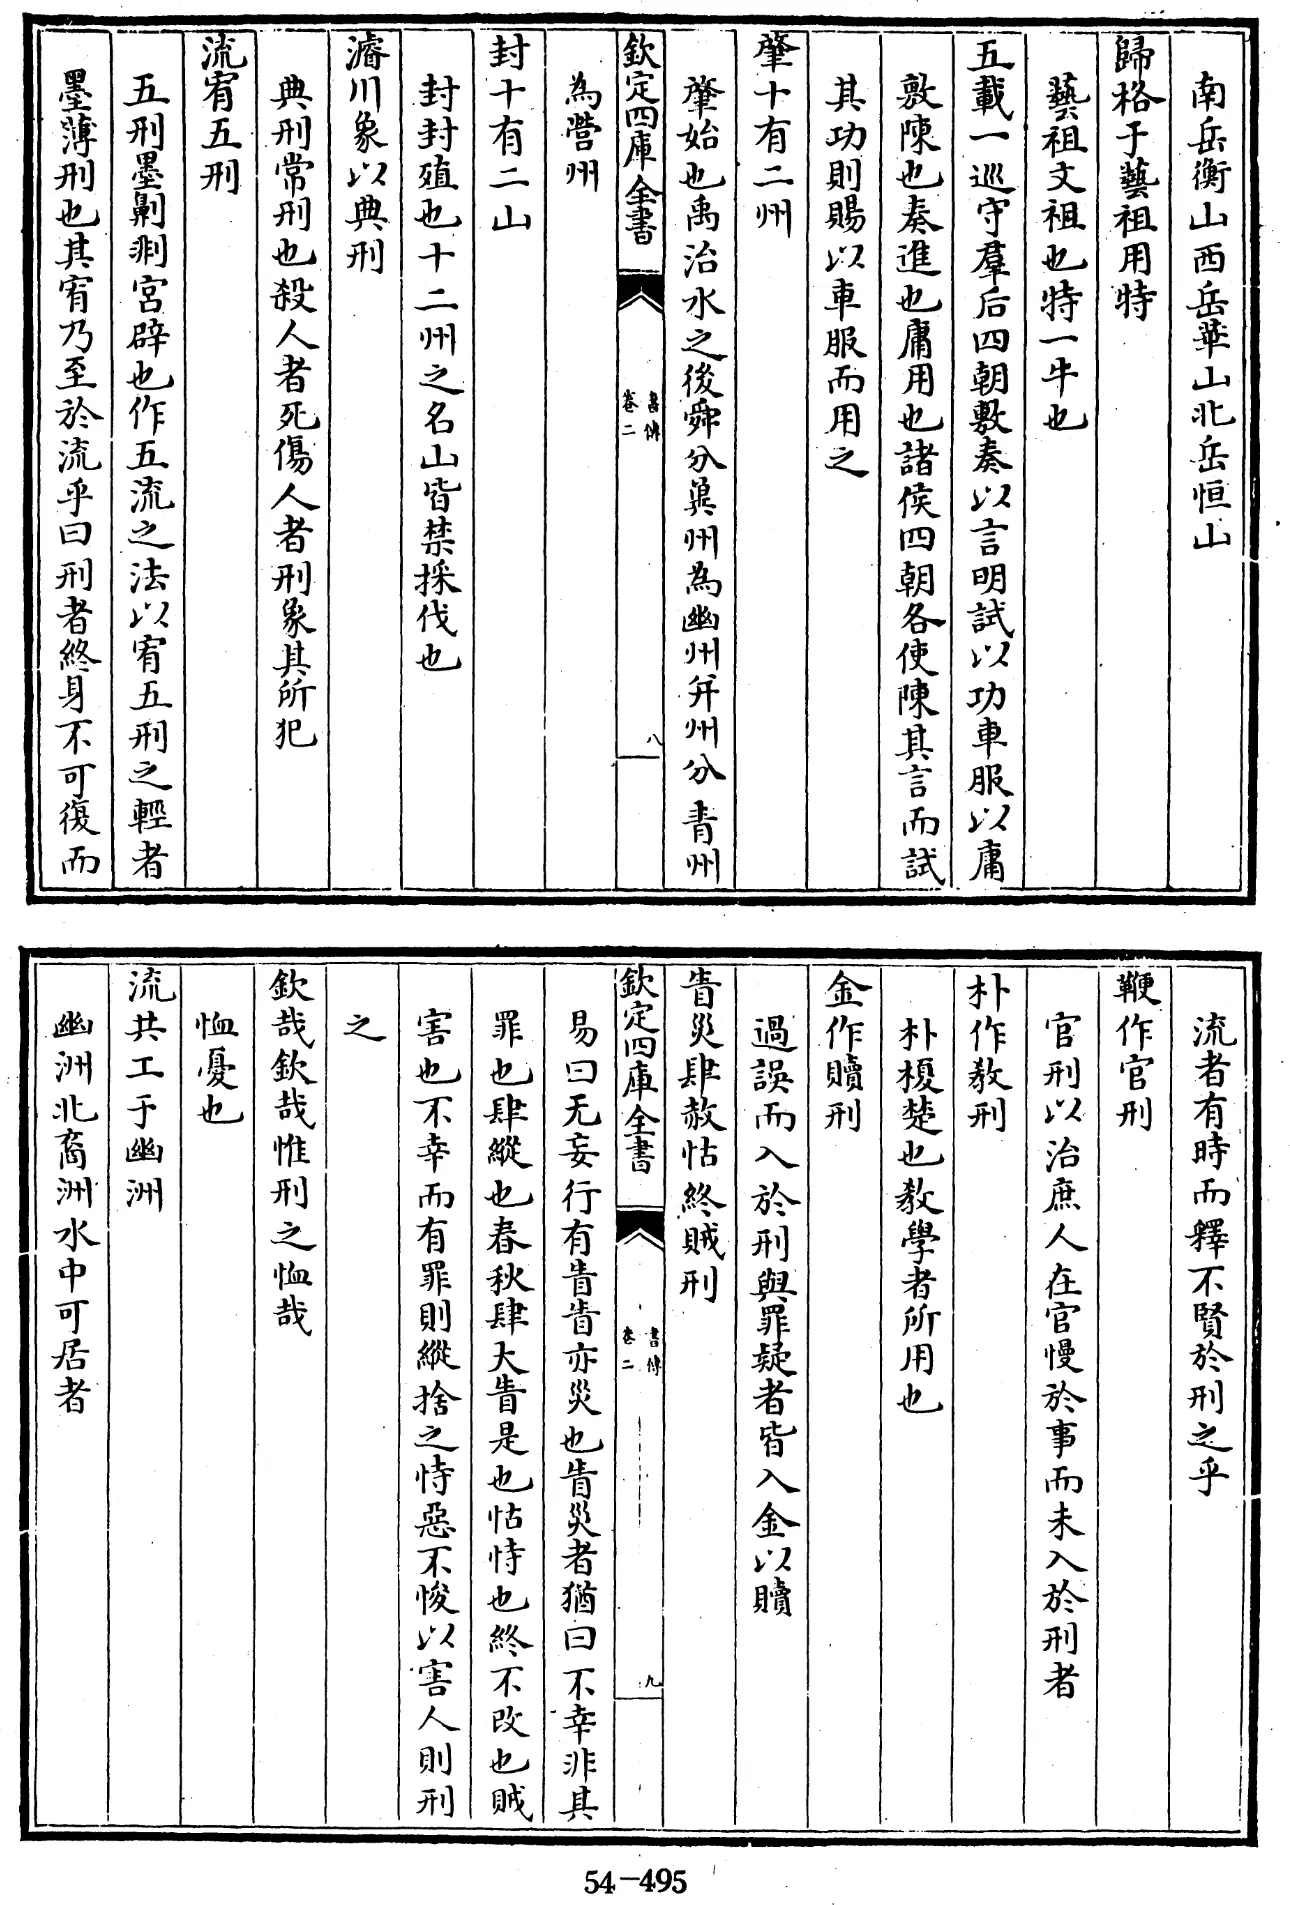 南岳衡山西岳華山北岳恒山
歸格于藝祖用特
藝祖文祖也特一牛也
五載一巡守羣后四朝敷奏以言明試以功車服以庸
敷陳也奏進也庸用也諸侯四朝各使陳其言而試
其功則賜以車服而用之
肇十有二州
肇始也禹治水之後舜分冀州為幽州并州分青州
欽定四庫全書
書傳
卷二
八
為營州
封十有二山
封封殖也十二州之名山皆禁採伐也
濬川象以典刑
典刑常刑也殺人者死傷人者刑象其所犯
流宥五刑
五刑墨劓剕宮辟也作五流之法以宥五刑之輕者
墨薄刑也其宥乃至於流乎曰刑者終身不可復而
流者有時而釋不賢於刑之乎
鞭作官刑
官刑以治庶人在官慢於事而未入於刑者
朴作教刑
朴榎楚也教學者所用也
金作贖刑
過誤而入於刑與罪疑者皆入金以贖
眚災肆赦怙終賊刑
欽定四庫全書
書傳
卷二
九
易曰无妄行有眚眚亦災也眚災者猶曰不幸非其
罪也肆縱也春秋肆大眚是也怙恃也終不改也賊
害也不幸而有罪則縱捨之恃惡不悛以害人則刑
之
欽哉欽哉惟刑之恤哉
恤憂也
流共工于幽洲
幽洲北裔洲水中可居者
54-495